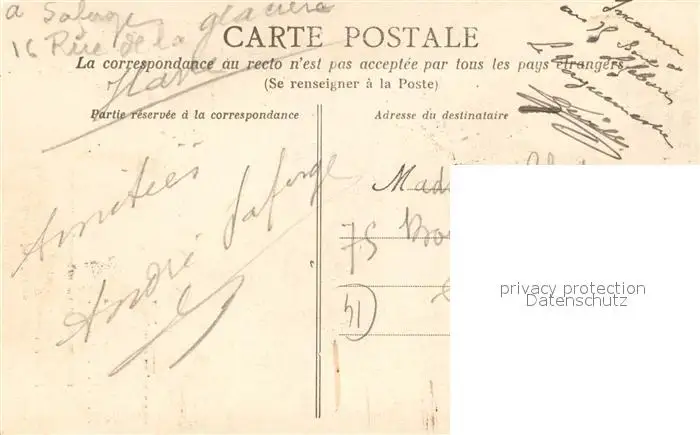 a Laforge
16 Rue de la glacière
Havre
CARTE POSTALE
La correspondance au recto n'est pas acceptée par tous les pays étrangers
(Se renseigner à la Poste)
Partie réservée à la correspondance
Adresse du destinataire
Inconnu
au 75 Bou
Le
Amitiés
André Laforge
Mad
75 Bou
14
privacy protection
Datenschutz